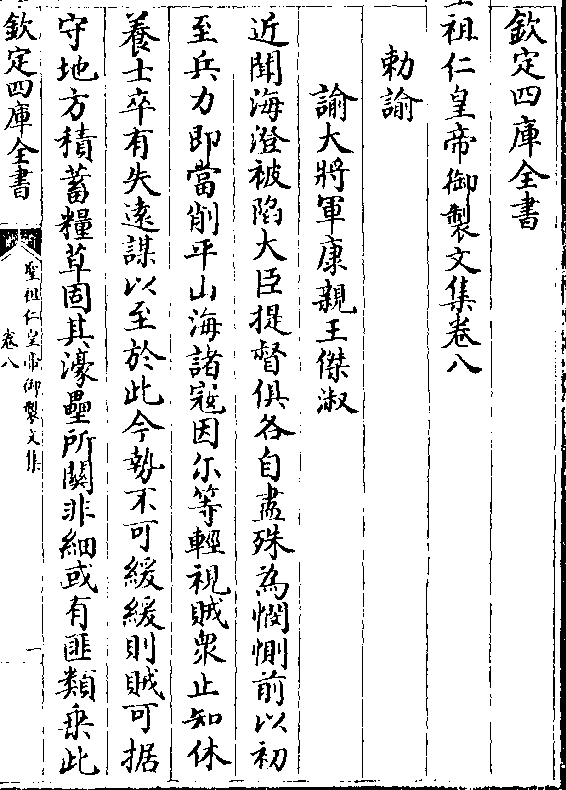 欽定四庫全書
聖祖仁皇帝御製文集卷八
勅諭
諭大將軍康親王傑淑
近聞海澄被陷大臣提督俱各自盡殊為憫惻前以初
至兵力即當削平山海諸寇因尔等輕視賊衆止知休
養士卒有失遠謀以至於此今勢不可緩緩則賊可据
守地方積蓄糧草固其濠壘所關非細或有匪類乗此
欽定四庫全書
聖祖仁皇帝御製文集
卷八
一